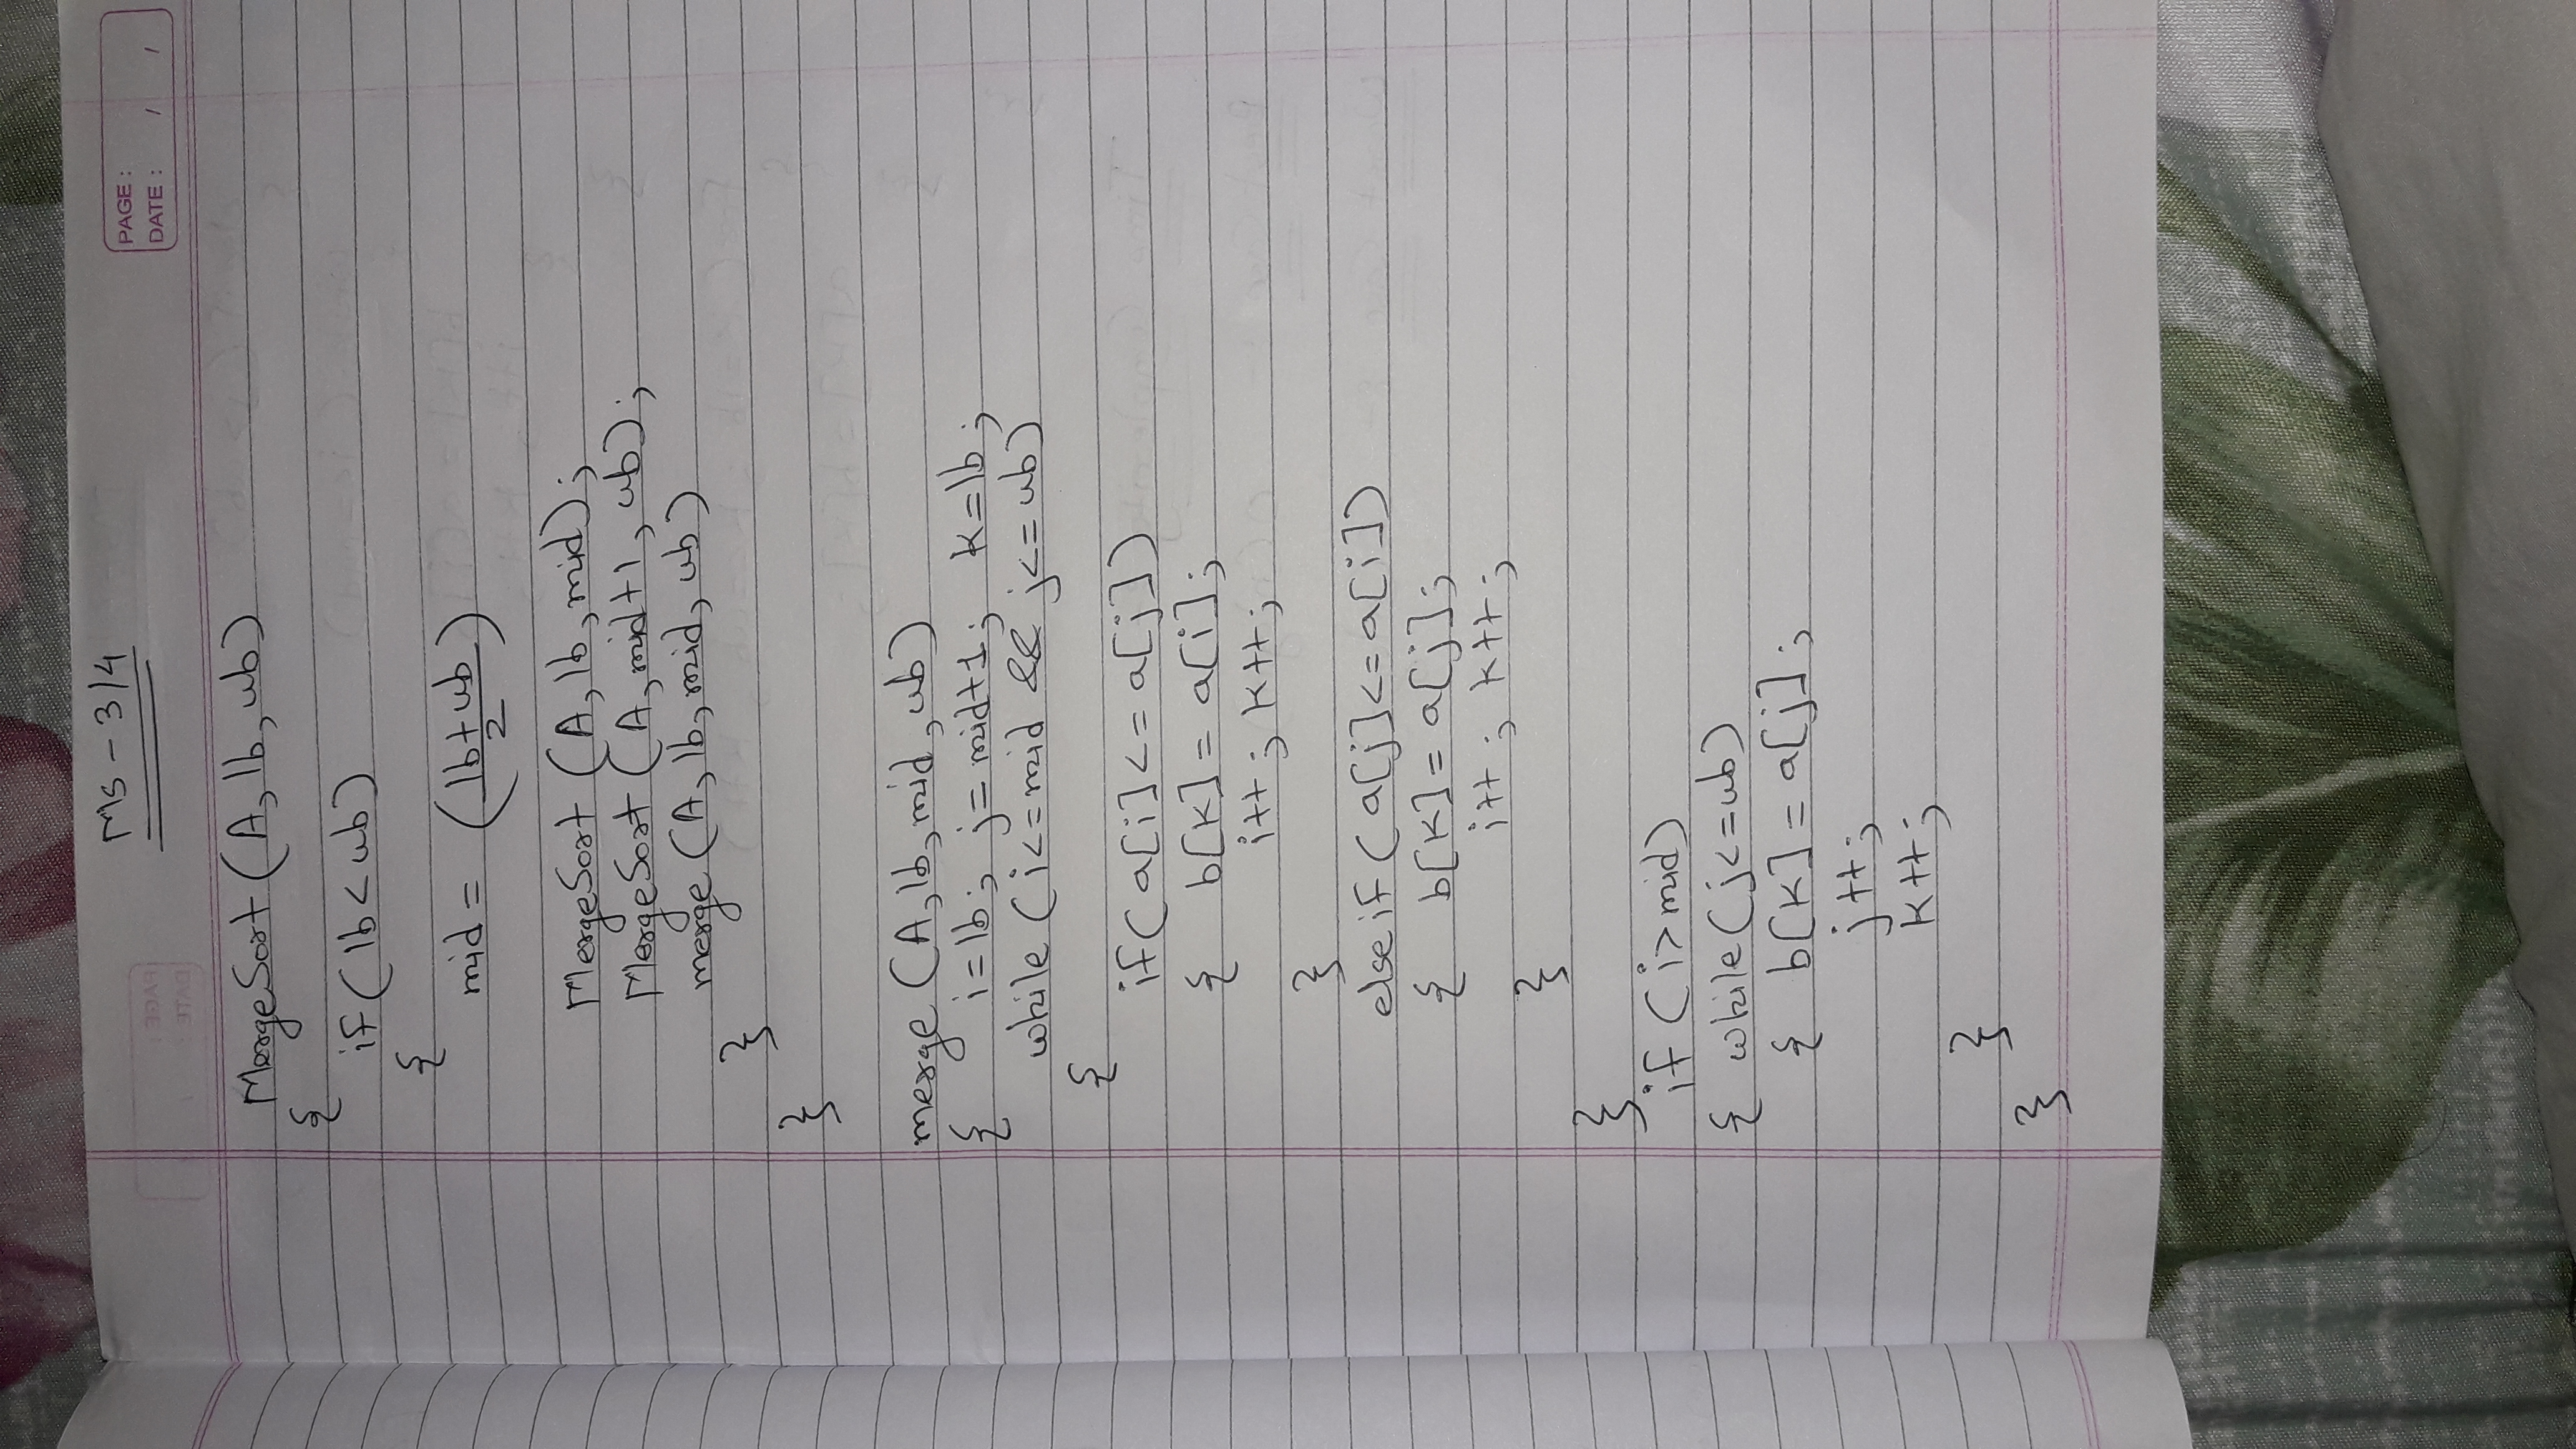 MS - 3/4
PAGE :
DATE : / /
MergeSort (A, lb, ub)
{
if (lb < ub)
{
mid = (lb+ub / 2)
MergeSort (A, lb, mid);
MergeSort (A, mid+1, ub);
merge (A, lb, mid, ub)
}
}
merge (A, lb, mid, ub)
{ i=lb; j=mid+1; k=lb;
while (i<=mid && j<=ub)
{
if (a[i]<=a[j])
{ b[k] = a[i];
i++; k++;
}
else if (a[j]<=a[i])
{ b[k] = a[j];
i++; k++;
}
}
if (i>mid)
{ while (j<=ub)
{ b[k] = a[j];
j++;
k++;
}
}